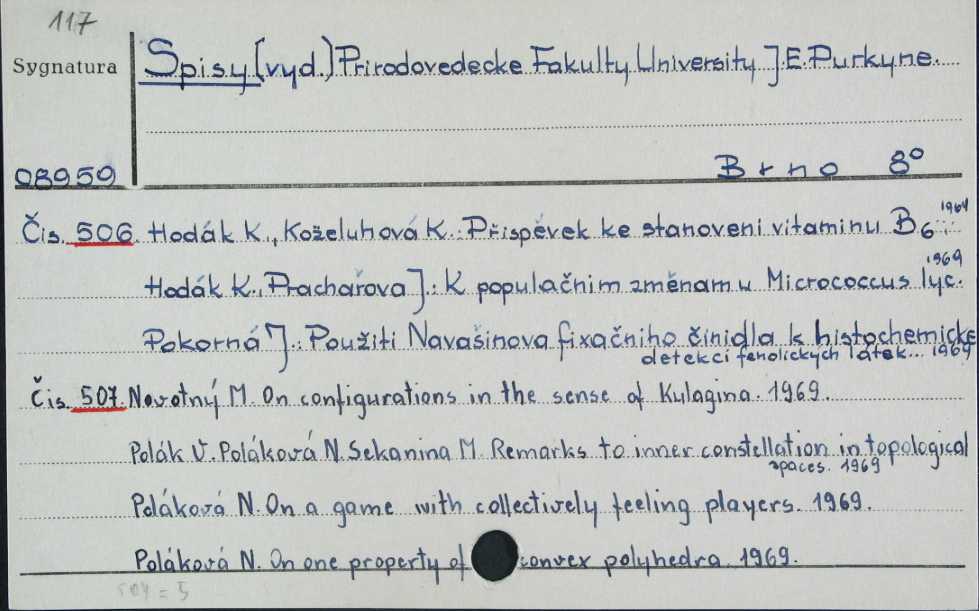 117
Sygnatura
Spisy (vyd.) Prirodovedecke Fakulty University J.E. Purkyne.
08959
Brno 8°
Čis. 506. Hodák K., Koželuhová K.: Přispěvek ke stanoveni vitaminu B6... 1969
Hodák K., Prachařova J.: K populačnim změnam u Micrococcus lyc. 1969
Pokorná J.: Použiti Navašinova fixačniho činidla k histochemicke
detekci fenolických látek... 1969
Čis. 507. Novotný M. On configurations in the sense of Kulagina. 1969.
Polák V. Poláková N. Sekanina M. Remarks to inner constellation in topological
spaces. 1969
Poláková N. On a game with collectively feeling players. 1969.
Poláková N. On one property of convex polyhedra. 1969.
504 = 5